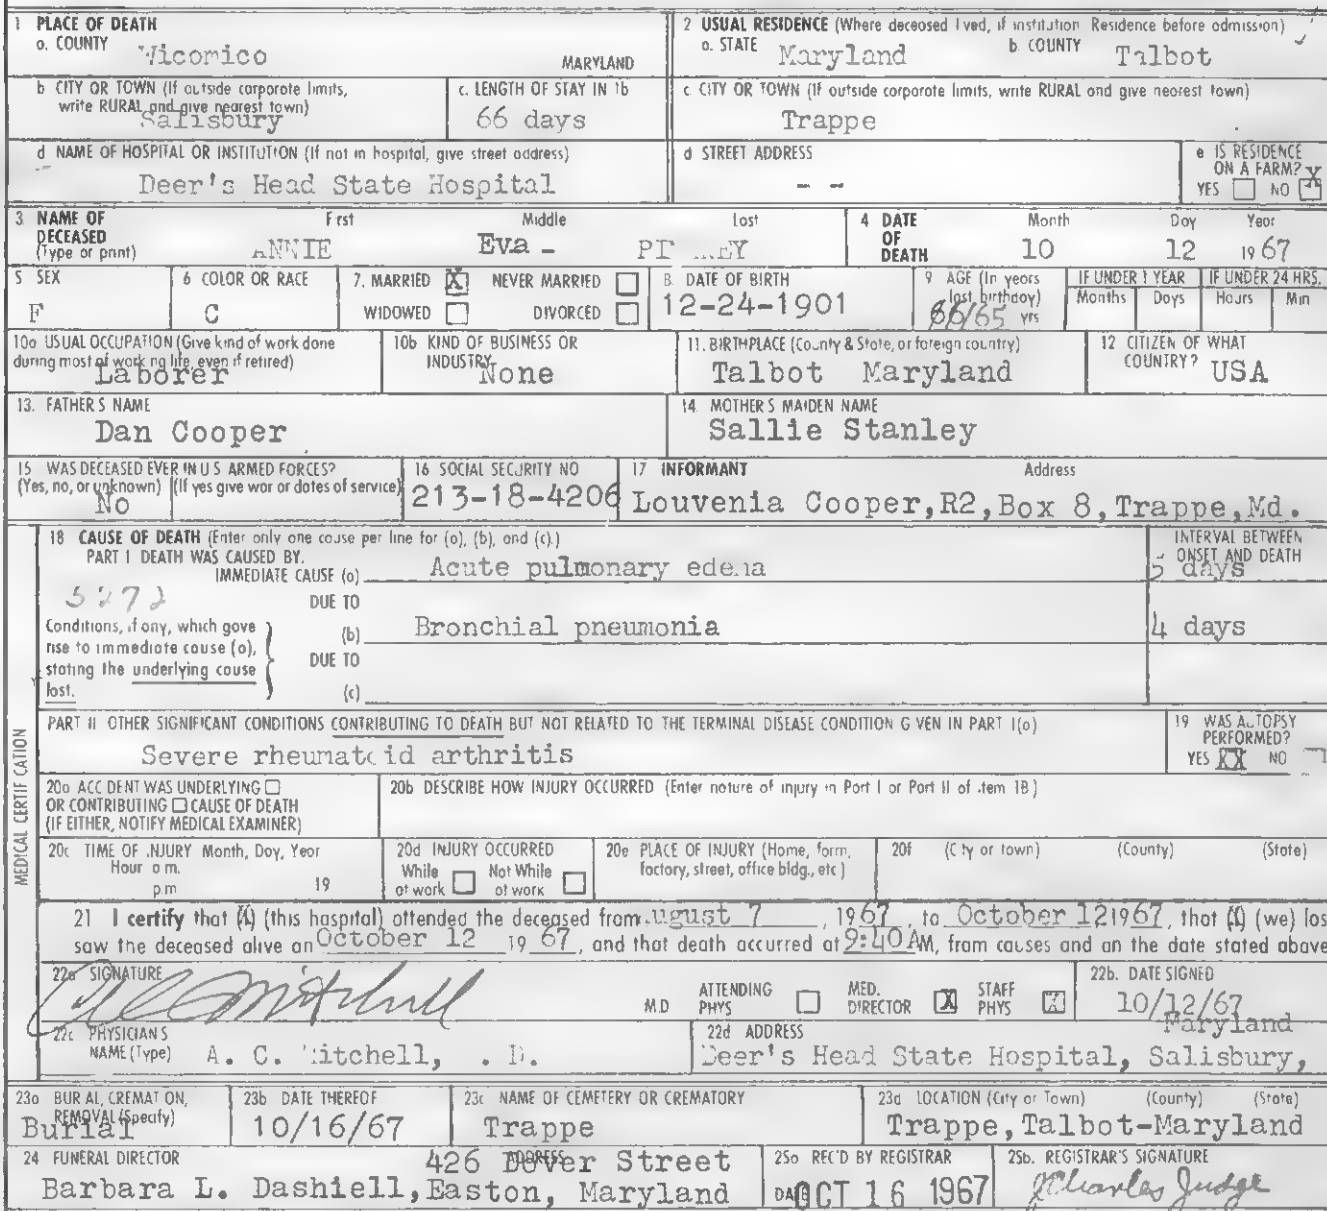 1 PLACE OF DEATH
a. COUNTY Wicomico MARYLAND
2 USUAL RESIDENCE (Where deceased lived, if institution Residence before admission)
a. STATE Maryland b. COUNTY Talbot
b CITY OR TOWN (If outside corporate limits, write RURAL and give nearest town)
Salisbury
c. LENGTH OF STAY IN 1b
66 days
c CITY OR TOWN (If outside corporate limits, write RURAL and give nearest town)
Trappe
d NAME OF HOSPITAL OR INSTITUTION (If not in hospital, give street address)
Deer's Head State Hospital
d STREET ADDRESS
- -
e IS RESIDENCE ON A FARM?
YES NO X
3 NAME OF DECEASED (Type or print)
First Middle Last
ANNIE Eva -
4 DATE OF DEATH
Month Day Year
10 12 1967
5 SEX
F
6 COLOR OR RACE
C
7. MARRIED X NEVER MARRIED
WIDOWED DIVORCED
8. DATE OF BIRTH
12-24-1901
9 AGE (In years last birthday)
66/65 yrs
IF UNDER 1 YEAR
Months Days
IF UNDER 24 HRS.
Hours Min
10a USUAL OCCUPATION (Give kind of work done during most of working life, even if retired)
Laborer
10b KIND OF BUSINESS OR INDUSTRY
None
11. BIRTHPLACE (County & State, or foreign country)
Talbot Maryland
12 CITIZEN OF WHAT COUNTRY?
USA
13. FATHER'S NAME
Dan Cooper
14. MOTHER'S MAIDEN NAME
Sallie Stanley
15 WAS DECEASED EVER IN U S ARMED FORCES?
(Yes, no, or unknown) (If yes give war or dates of service)
No
16 SOCIAL SECURITY NO
213-18-4206
17 INFORMANT Address
Louvenia Cooper,R2,Box 8,Trappe,Md.
18 CAUSE OF DEATH (Enter only one cause per line for (a), (b), and (c).)
PART I DEATH WAS CAUSED BY.
IMMEDIATE CAUSE (a) Acute pulmonary edema
INTERVAL BETWEEN ONSET AND DEATH
days
Conditions, if any, which gave rise to immediate cause (a), stating the underlying cause last.
DUE TO
(b) Bronchial pneumonia
4 days
DUE TO
(c)
PART II OTHER SIGNIFICANT CONDITIONS CONTRIBUTING TO DEATH BUT NOT RELATED TO THE TERMINAL DISEASE CONDITION GIVEN IN PART I(a)
Severe rheumatoid arthritis
19 WAS AUTOPSY PERFORMED?
YES XX NO
MEDICAL CERTIFICATION
20a ACCIDENT WAS UNDERLYING
OR CONTRIBUTING CAUSE OF DEATH
(IF EITHER, NOTIFY MEDICAL EXAMINER)
20b DESCRIBE HOW INJURY OCCURRED (Enter nature of injury in Part I or Part II of item 18)
20c TIME OF INJURY Month, Day, Year
Hour a m.
p m 19
20d INJURY OCCURRED
While at work Not While at work
20e PLACE OF INJURY (Home, farm, factory, street, office bldg., etc)
20f (City or town) (County) (State)
21 I certify that (I) (this hospital) attended the deceased from ugust 7, 1967, to October 12 1967, that (I) (we) las
saw the deceased alive on October 12 1967, and that death occurred at 9:40 AM, from causes and on the date stated above
22a SIGNATURE
A C Mitchell
M.D ATTENDING PHYS MED. DIRECTOR X STAFF PHYS X
22b. DATE SIGNED
10/12/67
22c PHYSICIAN'S NAME (Type) A. C. Mitchell, . D.
22d ADDRESS
Deer's Head State Hospital, Salisbury, Maryland
23a BURIAL, CREMATION, REMOVAL (Specify)
Burial
23b DATE THEREOF
10/16/67
23c NAME OF CEMETERY OR CREMATORY
Trappe
23d LOCATION (City or Town) (County) (State)
Trappe,Talbot-Maryland
24 FUNERAL DIRECTOR ADDRESS
426 Dover Street
Barbara L. Dashiell,Easton, Maryland
25a REC'D BY REGISTRAR
DATE OCT 16 1967
25b. REGISTRAR'S SIGNATURE
J Charles Judge